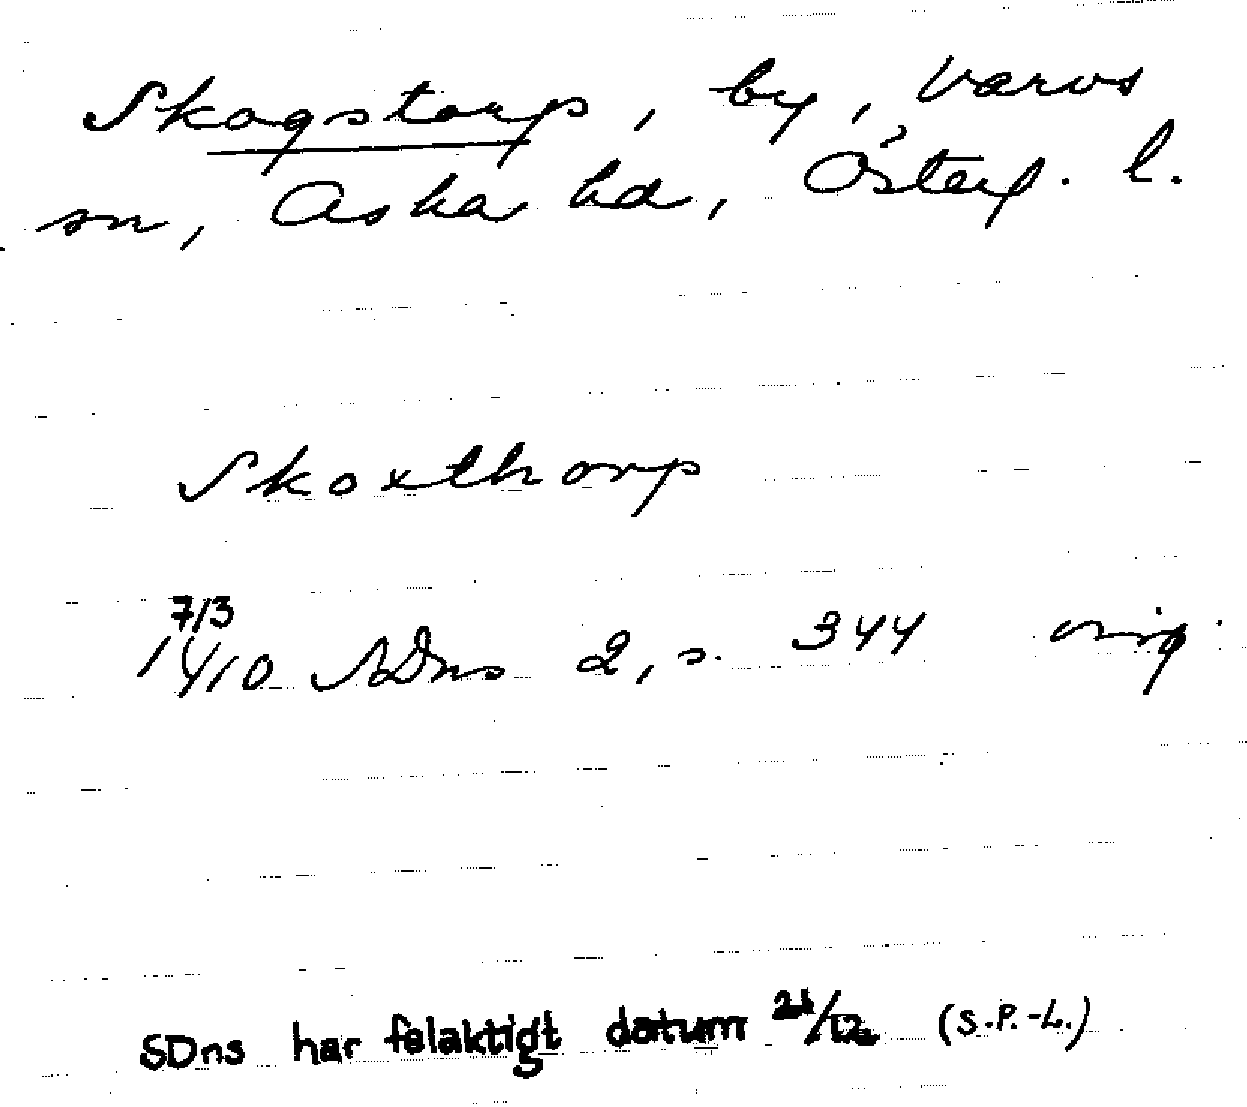 Skogstorp, by, Varvs
sn, Aska hd, Österg. l.
Skoxthorp
7/3
1410 SDns 2, s. 344 orig.
SDns har felaktigt datum 21/12 (S.P.-L.)